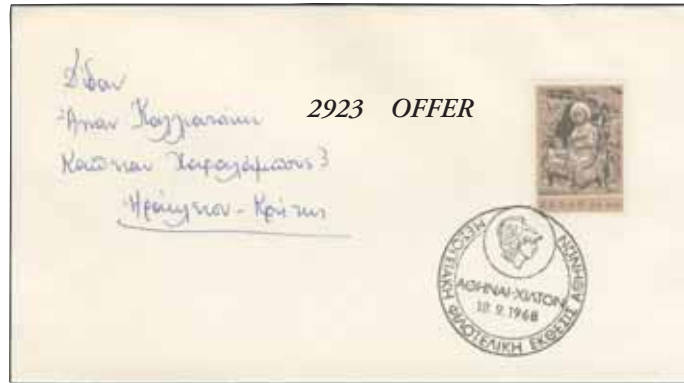 Δίδαν
Άνναν Καλλιατάκη
Καπεταν Χαραλάμπους 3
Ηράκλειον - Κρήτης
2923 OFFER
ΜΕΣΟΓΕΙΑΚΗ ΦΙΛΟΤΕΛΙΚΗ ΕΚΘΕΣΙΣ ΑΘΗΝΩΝ
ΑΘΗΝΑΙ-ΧΙΛΤΟΝ
18.9.1968